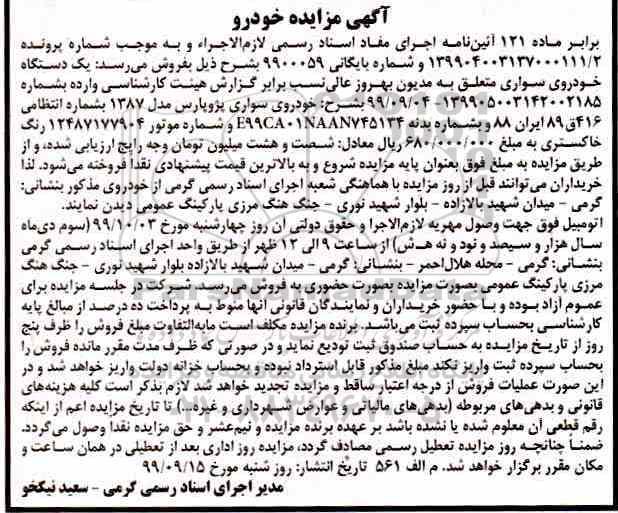 آگهی مزایده خودرو
برابر ماده ۱۲۱ آئین‌نامه اجرای مفاد اسناد رسمی لازم‌الاجراء و به موجب شماره پرونده
۱۳۹۹۰۴۰۰۳۱۳۷۰۰۰۱۱۱/۲ و شماره بایگانی ۹۹۰۰۰۵۹ بشرح ذیل بفروش می‌رسد: یک دستگاه
خودروی سواری متعلق به مدیون بهروز عالی‌نسب برابر گزارش هیئت کارشناسی وارده بشماره
۱۳۹۹۰۵۰۰۳۱۴۲۰۰۲۱۸۵ ۹۹/۰۹/۰۴ بشرح: خودروی سواری پژوپارس مدل ۱۳۸۷ بشماره انتظامی
۴۱۶ق۸۹ ایران ۸۸ و بشماره بدنه E۹۹CA۰۱NAAN۷۴۵۱۳۴ و شماره موتور ۱۲۴۸۷۱۷۷۹۰۴ رنگ
خاکستری به مبلغ ۶۸۰/۰۰۰/۰۰۰ ریال معادل: شصت و هشت میلیون تومان وجه رایج ارزیابی شده، و از
طریق مزایده به مبلغ فوق بعنوان پایه مزایده شروع و به بالاترین قیمت پیشنهادی نقدا فروخته می‌شود. لذا
خریداران می‌توانند قبل از روز مزایده با هماهنگی شعبه اجرای اسناد رسمی گرمی از خودروی مذکور بنشانی:
گرمی - میدان شهید بالازاده - بلوار شهید نوری - جنگ هنگ مرزی پارکینگ عمومی دیدن نمایند.
اتومبیل فوق جهت وصول مهریه لازم‌الاجرا و حقوق دولتی آن روز چهارشنبه مورخ ۹۹/۱۰/۰۳ (سوم دی‌ماه
سال هزار و سیصد و نود و نه ه‍.ش) از ساعت ۹ الی ۱۲ ظهر از طریق واحد اجرای اسناد رسمی گرمی
بنشانی: گرمی - محله هلال‌احمر - بنشانی: گرمی - میدان شهید بالازاده بلوار شهید نوری - جنگ هنگ
مرزی پارکینگ عمومی بصورت مزایده بصورت حضوری به فروش می‌رسد. شرکت در جلسه مزایده برای
عموم آزاد بوده و با حضور خریداران و نمایندگان قانونی آنها منوط به پرداخت ده درصد از مبالغ پایه
کارشناسی بحساب سپرده ثبت می‌باشد. برنده مزایده مکلف است مابه‌التفاوت مبلغ فروش را ظرف پنج
روز از تاریخ مزایده به حساب صندوق ثبت تودیع نماید و در صورتی که ظرف مدت مقرر مانده فروش را
بحساب سپرده ثبت واریز نکند مبلغ مذکور قابل استرداد نبوده و بحساب خزانه دولت واریز خواهد شد و در
این صورت عملیات فروش از درجه اعتبار ساقط و مزایده تجدید خواهد شد لازم بذکر است کلیه هزینه‌های
قانونی و بدهی‌های مربوطه (بدهی‌های مالیاتی و عوارض شهرداری و غیره...) تا تاریخ مزایده اعم از اینکه
رقم قطعی آن معلوم شده یا نشده باشد بر عهده برنده مزایده و نیم‌عشر و حق مزایده نقدا وصول می‌گردد.
ضمناً چنانچه روز مزایده تعطیل رسمی مصادف گردد، مزایده روز اداری بعد از تعطیلی در همان ساعت و
مکان مقرر برگزار خواهد شد. م الف ۵۶۱ تاریخ انتشار: روز شنبه مورخ ۹۹/۰۹/۱۵
مدیر اجرای اسناد رسمی گرمی - سعید نیکخو